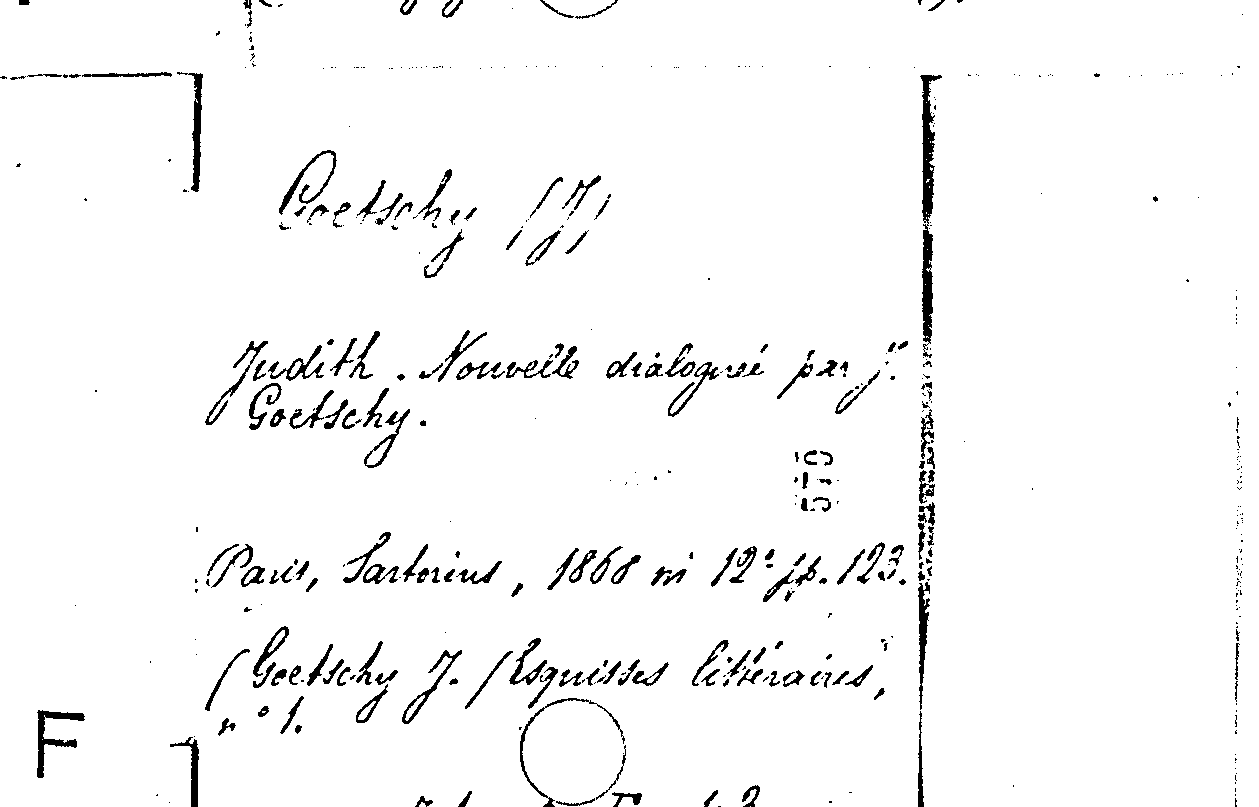 Goetschy (J)
Judith. Nouvelle dialoguée par J.
Goetschy.
570
Paris, Sartorius, 1868 in 12° pp. 123.
(Goetschy J. (Esquisses littéraires,
n° 1.
F